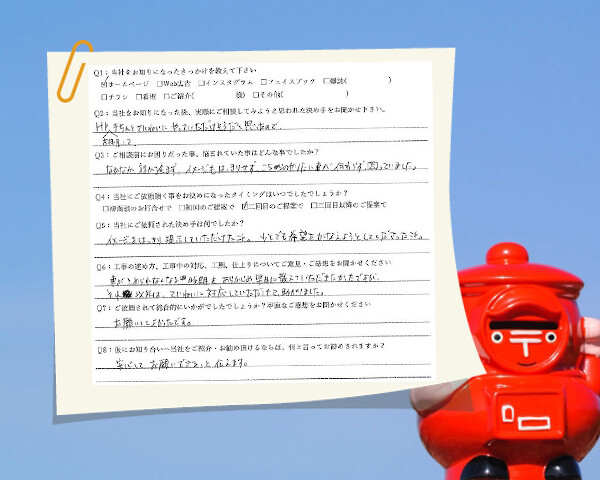 Q1：当社をお知りになったきっかけを教えて下さい
☑ホームページ □Web広告 □インスタグラム □フェイスブック □雑誌( )
□チラシ □看板 □ご紹介( 様) □その他( )
Q2：当社をお知りになった後、実際にご相談してみようと思われた決め手をお聞かせ下さい。
HPを きちんと ていねいに やっていただけそうだと思ったので。
Q3：ご相談前にお困りだった事、悩まれていた事はどんな事でしたか？
なかなか 話が進まず、イメージもはっきりせず、 困っていました。
Q4：当社にご依頼頂く事をお決めになったタイミングはいつでしたでしょうか？
□初面談のお打合せで □初回のご提案で ☑二回目のご提案で □三回目以降のご提案で
Q5：当社にご依頼された決め手は何でしたか？
イメージをはっきり提示していただけたこと。 少しでも希望をかなえようとしてくださったこと。
Q6：工事の進め方、工事中の対応、工期、仕上りについてご意見・ご感想をお聞かせください
車がとめられなくなる時期を あらかじめ 早目に教えていただきたかったですが、
それ以外は、ていねいに対応していただけて、助かりました。
Q7：ご依頼されて総合的にいかがでしたでしょうか？率直なご感想をお聞かせください
お願いしてよかったです。
Q8：仮にお知り合いへ当社をご紹介・お勧め頂けるならば、何と言ってお勧めされますか？
安心して お願いできると 伝えます。